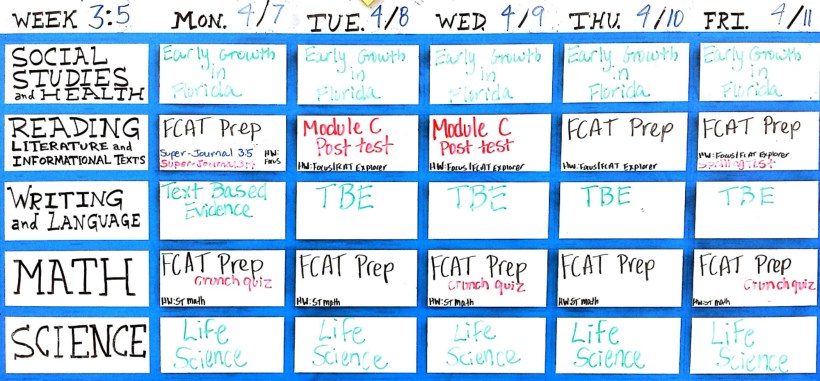 WEEK 3:5 MON. 4/7 TUE. 4/8 WED. 4/9 THU. 4/10 FRI. 4/11
SOCIAL STUDIES and HEALTH
Early Growth in Florida
Early Growth in Florida
Early Growth in Florida
Early Growth in Florida
Early Growth in Florida
READING
LITERATURE and
INFORMATIONAL TEXTS
FCAT Prep
Super-Journal 3:5
Super-Journal
HW: Focus
Module C
Post test
HW: Focus/FCAT Explorer
Module C
Post test
HW: Focus/FCAT Explorer
FCAT Prep
HW: Focus/FCAT Explorer
FCAT Prep
HW: Focus/FCAT Explorer
Spelling test
WRITING
and LANGUAGE
Text Based
Evidence
TBE
TBE
TBE
TBE
MATH
FCAT Prep
Crunch quiz
HW: ST math
FCAT Prep
HW: ST math
FCAT Prep
Crunch quiz
HW: ST math
FCAT Prep
HW: ST math
FCAT Prep
Crunch quiz
HW: ST math
SCIENCE
Life
Science
Life
Science
Life
Science
Life
Science
Life
Science